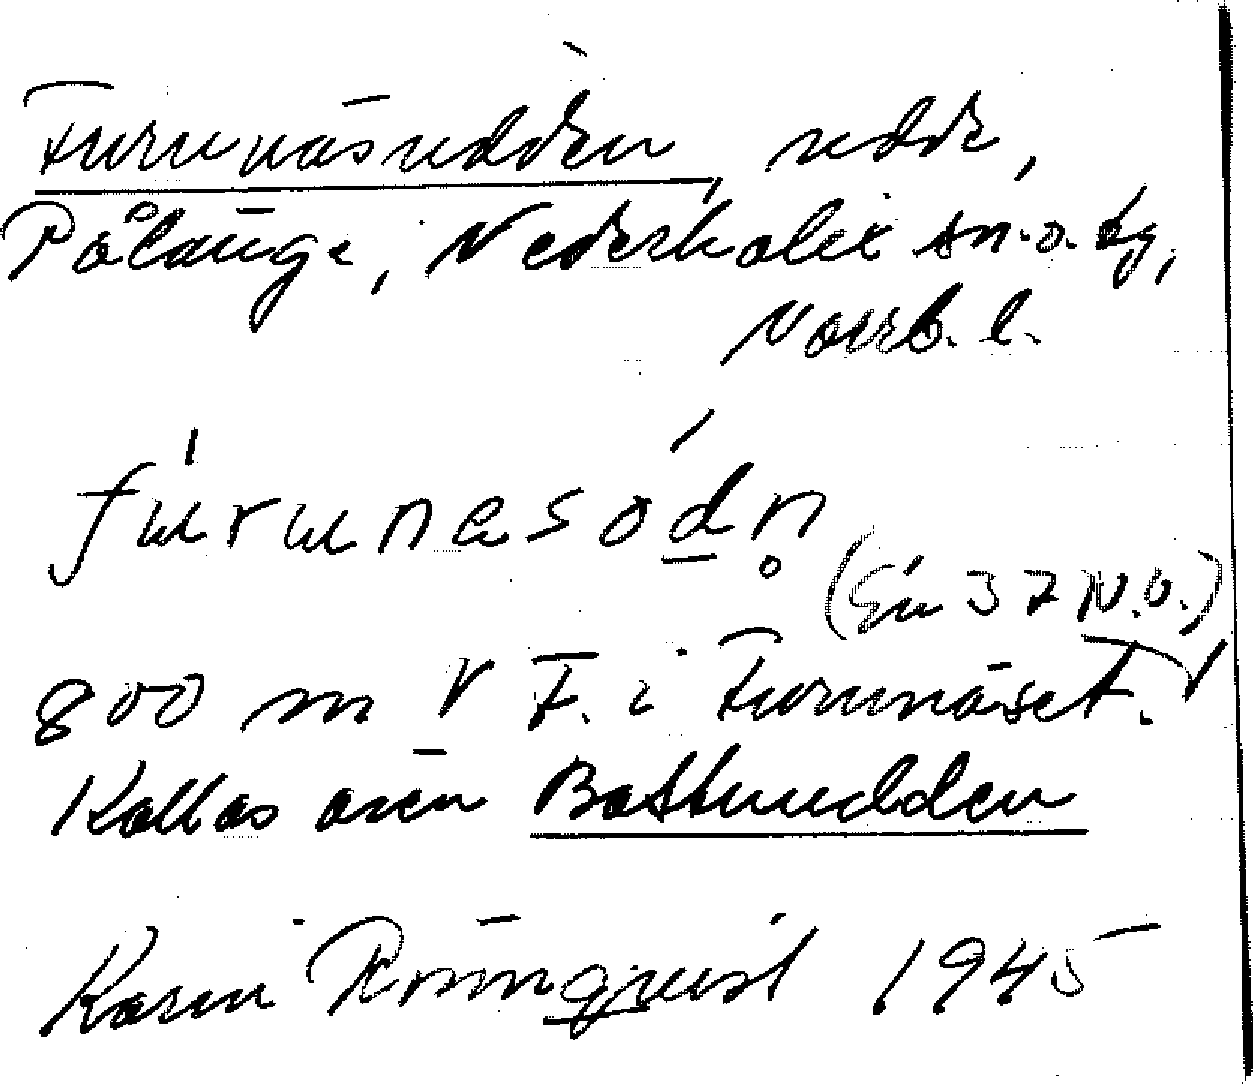 Furunäsudden, udde,
Pålänge, Nederkalix sn. o. tg,
Norrb. l.
fúrunesód̲n̥
(En 37 N.O.)
800 m V F. i Furunäset.
Kallas även Båthusudden
Karin Rönnqvist 1945